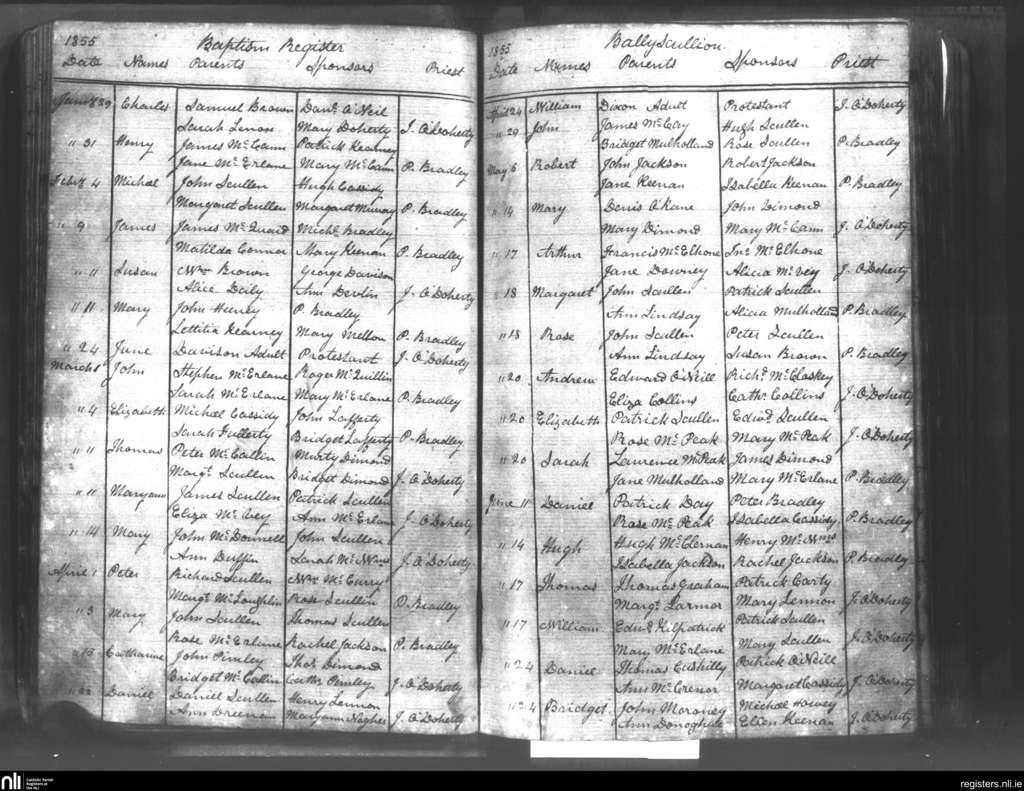 1855 Baptism Register
Date Names Parents Sponsors Priest
Jany 29 Charles Samuel Brown Danl. O'Neil
Sarah Lenon Mary Doherty J. O'Doherty
" 31 Henry James McCann Patrick Kearney
Jane McErlane Mary McCann P. Bradley
Feby 4 Michael John Scullen Hugh Cassidy
Margaret Scullen Margaret Murray P. Bradley
" 9 James James McQuaid Michl. Bradley
Matilda Connor Mary Keenan P. Bradley
" 11 Susan Wm Brown George Davison
Alice Daily Ann Devlin J. O'Doherty
" 11 Mary John Heeney P. Bradley
Lettitia Kearney Mary Mellon P. Bradley
" 24 Jane Davison Adult Protestant J. O'Doherty
March John Stephen McErlane Roger McQuillin
Sarah McErlane Mary McErlane P. Bradley
" 4 Elizabeth Michael Cassidy John Lafferty
Sarah Fullerty Bridget Lafferty P. Bradley
" 11 Thomas Peter McCallin Murty Dimond
Margt. Scullen Bridget Dimond J. O'Doherty
" 11 Maryann James Scullen Patrick Scullen
Eliza McVey Ann McErlane J. O'Doherty
" 14 Mary John McDonnell John Scullen
Ann Duffin Sarah J. O'Doherty
April 1 Peter Richard Scullen Wm McCurry
Margt. McLoughlin Rose Scullin P. Bradley
" 3 Mary John Scullen Thomas Scullen
Rose McErlane Rachel Jackson P. Bradley
" 15 Catharine John Pimley Thos. Dimond
Bridget McCallin Cathr. Pimley J. O'Doherty
" 22 Daniel Daniel Scullen Henry Lennon
Ann Dreenan Maryann J. O'Doherty
1855 Ballyscullion
Date Names Parents Sponsors Priest
April 24 William Dixon Adult Protestant J. O'Doherty
" 29 John James McCay Hugh Scullen
Bridget Mulholland Rose Scullen P. Bradley
May 6 Robert John Jackson Robert Jackson
Jane Keenan Isabella Keenan P. Bradley
" 14 Mary Denis O'Kane John Dimond
Mary Dimond Mary McCann J. O'Doherty
" 17 Arthur Francis McElhone Jno. McElhone
Jane Downey Alicia McVey J. O'Doherty
" 18 Margaret John Scullen Patrick Scullen
Ann Lindsay Alicia Mulholland P. Bradley
" 18 Rose John Scullen Peter Scullen
Ann Lindsay Susan Brown P. Bradley
" 20 Andrew Edward O'Neill Richd. McClaskey
Eliza Collins Cathr. Collins J. O'Doherty
" 20 Elizabeth Patrick Scullen Edwd. Scullen
Rose McPeak Mary McPeak J. O'Doherty
" 20 Sarah Laurence McPeak James Dimond
Jane Mulholland Mary McErlane P. Bradley
June 11 Daniel Patrick Day Peter Bradley
Rose McPeak Isabella Cassidy P. Bradley
" 14 Hugh Hugh McClernan Henry
Isabella Jackson Rachel Jackson P. Bradley
" 17 Thomas Thomas Graham Patrick Carty
Margt. Larmor Mary Lennon J. O'Doherty
" 17 William Edwd. Kilpatrick Patrick Scullen
Mary McErlane Mary Scullen J. O'Doherty
" 24 Daniel Thomas Cushilly Patrick O'Neill
Ann McCrenor Margaret Cassidy J. O'Doherty
" 24 Bridget John Moroney Michael Howey
Ann Donoghue Ellen Keenan J. O'Doherty
nli
Catholic Parish
Registers at
the NLI
registers.nli.ie